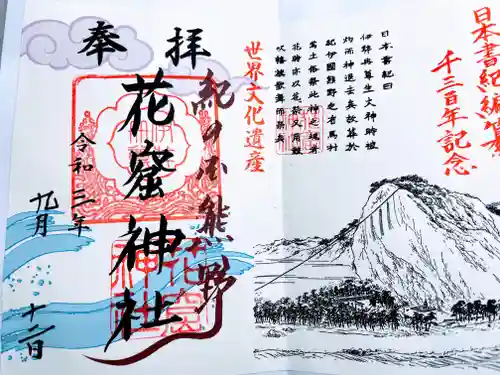 日本書紀編纂
千三百年記念
日本書紀曰
伊弉冉尊生火神時被
灼而神退去矣故葬於
紀伊國熊野之有馬村
焉土俗祭此神之魂者
花時亦以花祭又用鼓
吹幡旗歌舞而祭矣
世界文化遺産
奉拝
紀の国熊野
花窟神社
令和三年
九月
十二日